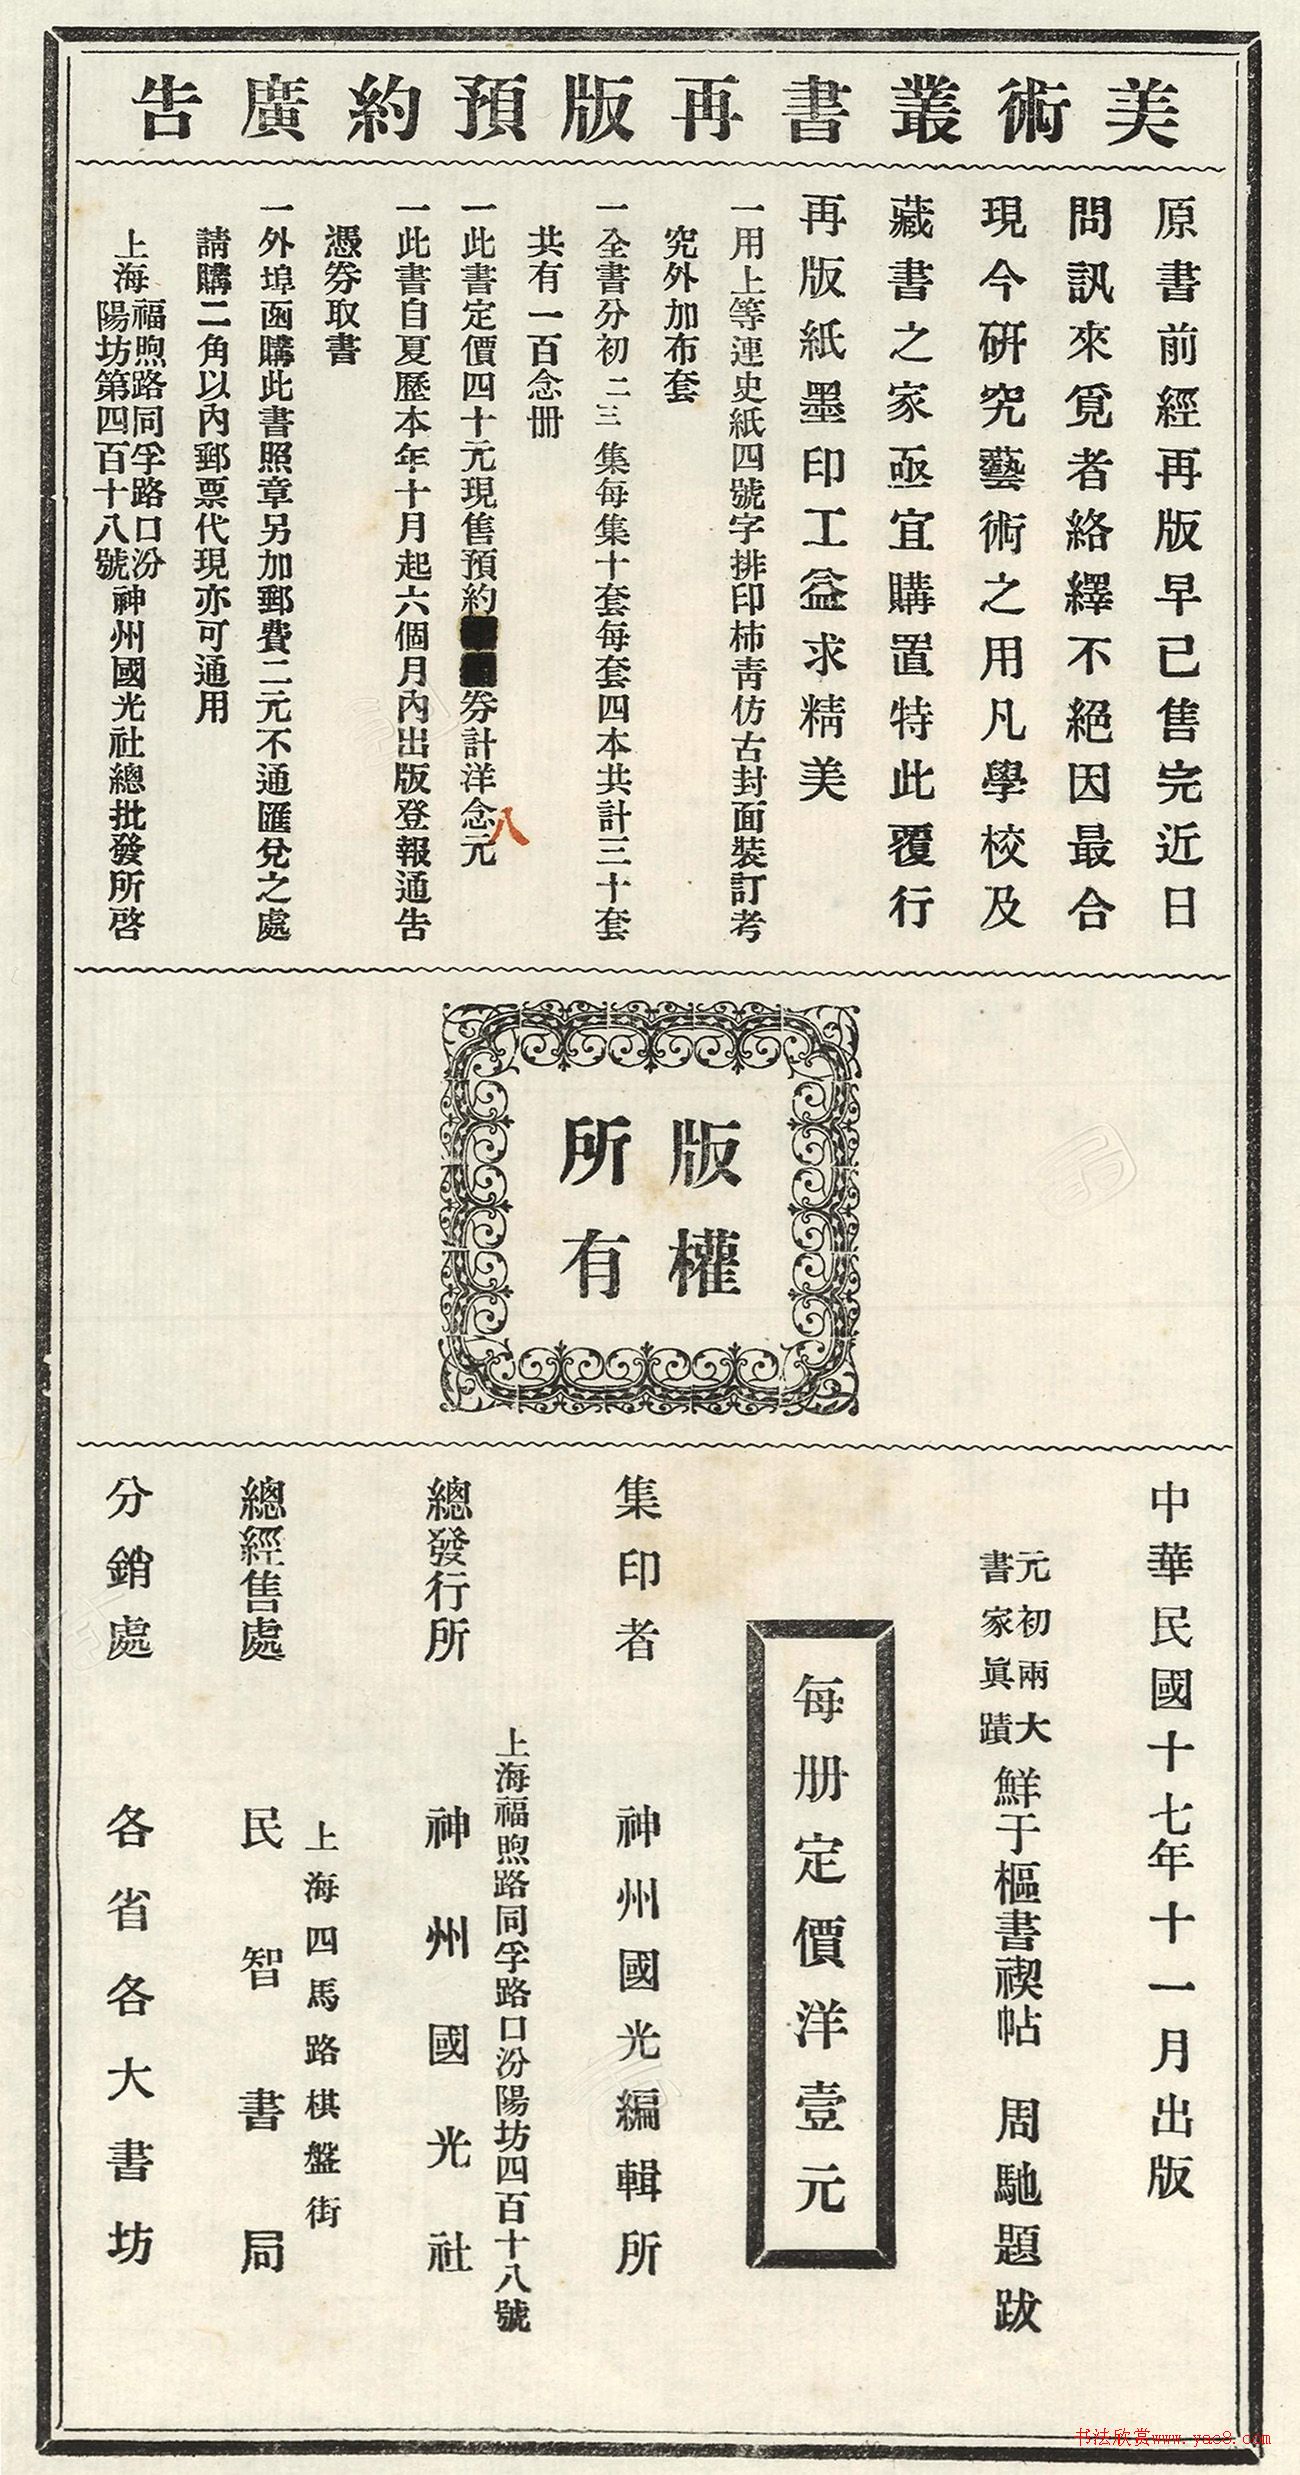 美術叢書再版預約廣告
原書前經再版早已售完近日
問訊來覓者絡繹不絕因最合
現今研究藝術之用凡學校及
藏書之家亟宜購置特此覆行
再版紙墨印工益求精美
一用上等連史紙四號字排印柿靑仿古封面裝訂考
究外加布套
一全書分初二三集每集十套每套四本共計三十套
共有一百念册
一此書定價四十元現售預約券計洋念八元
一此書自夏歷本年十月起六個月內出版登報通告
憑券取書
一外埠函購此書照章另加郵費二元不通匯兌之處
請購二角以內郵票代現亦可通用
上海福煦路同孚路口汾陽坊第四百十八號神州國光社總批發所啓
版權
所有
中華民國十七年十一月出版
元初兩大書家眞蹟鮮于樞書禊帖 周馳題跋
每册定價洋壹元
集印者 神州國光編輯所
上海福煦路同孚路口汾陽坊四百十八號
總發行所 神州國光社
上海四馬路棋盤街
總經售處 民智書局
分銷處 各省各大書坊
书法欣赏www.yac8.com